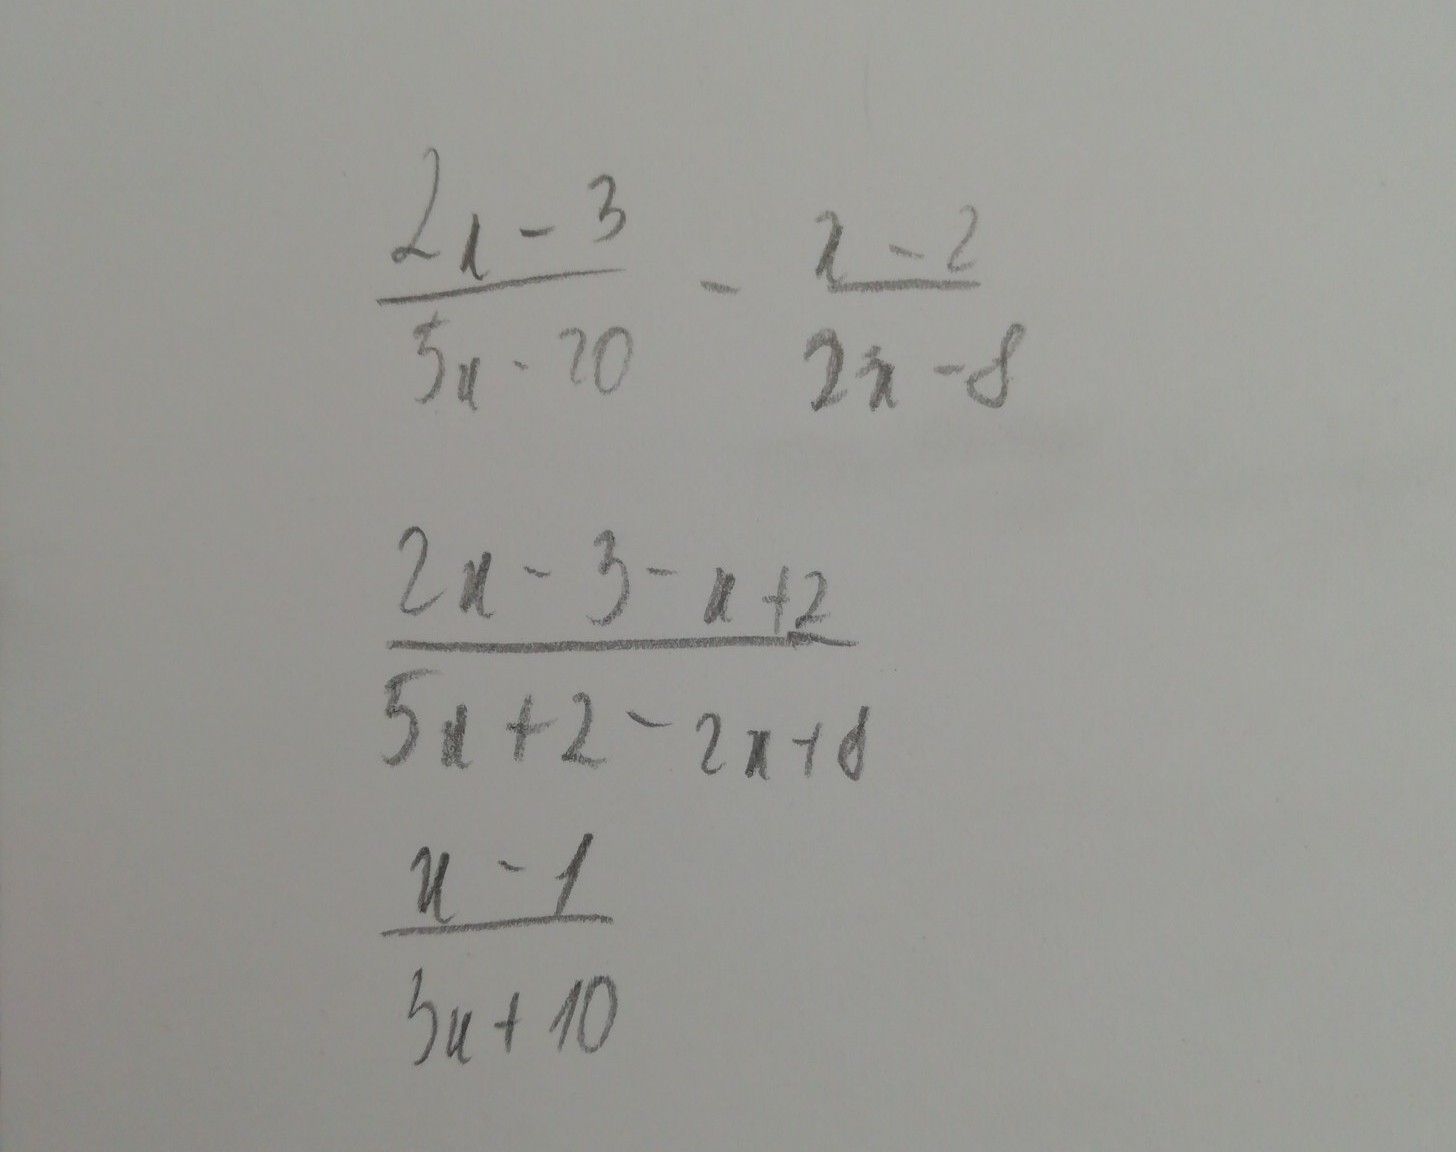 2x - 3
5x - 20
-
x - 2
2x - 8
2x - 3 - x + 2
5x + 2 - 2x + 8
x - 1
3x + 10